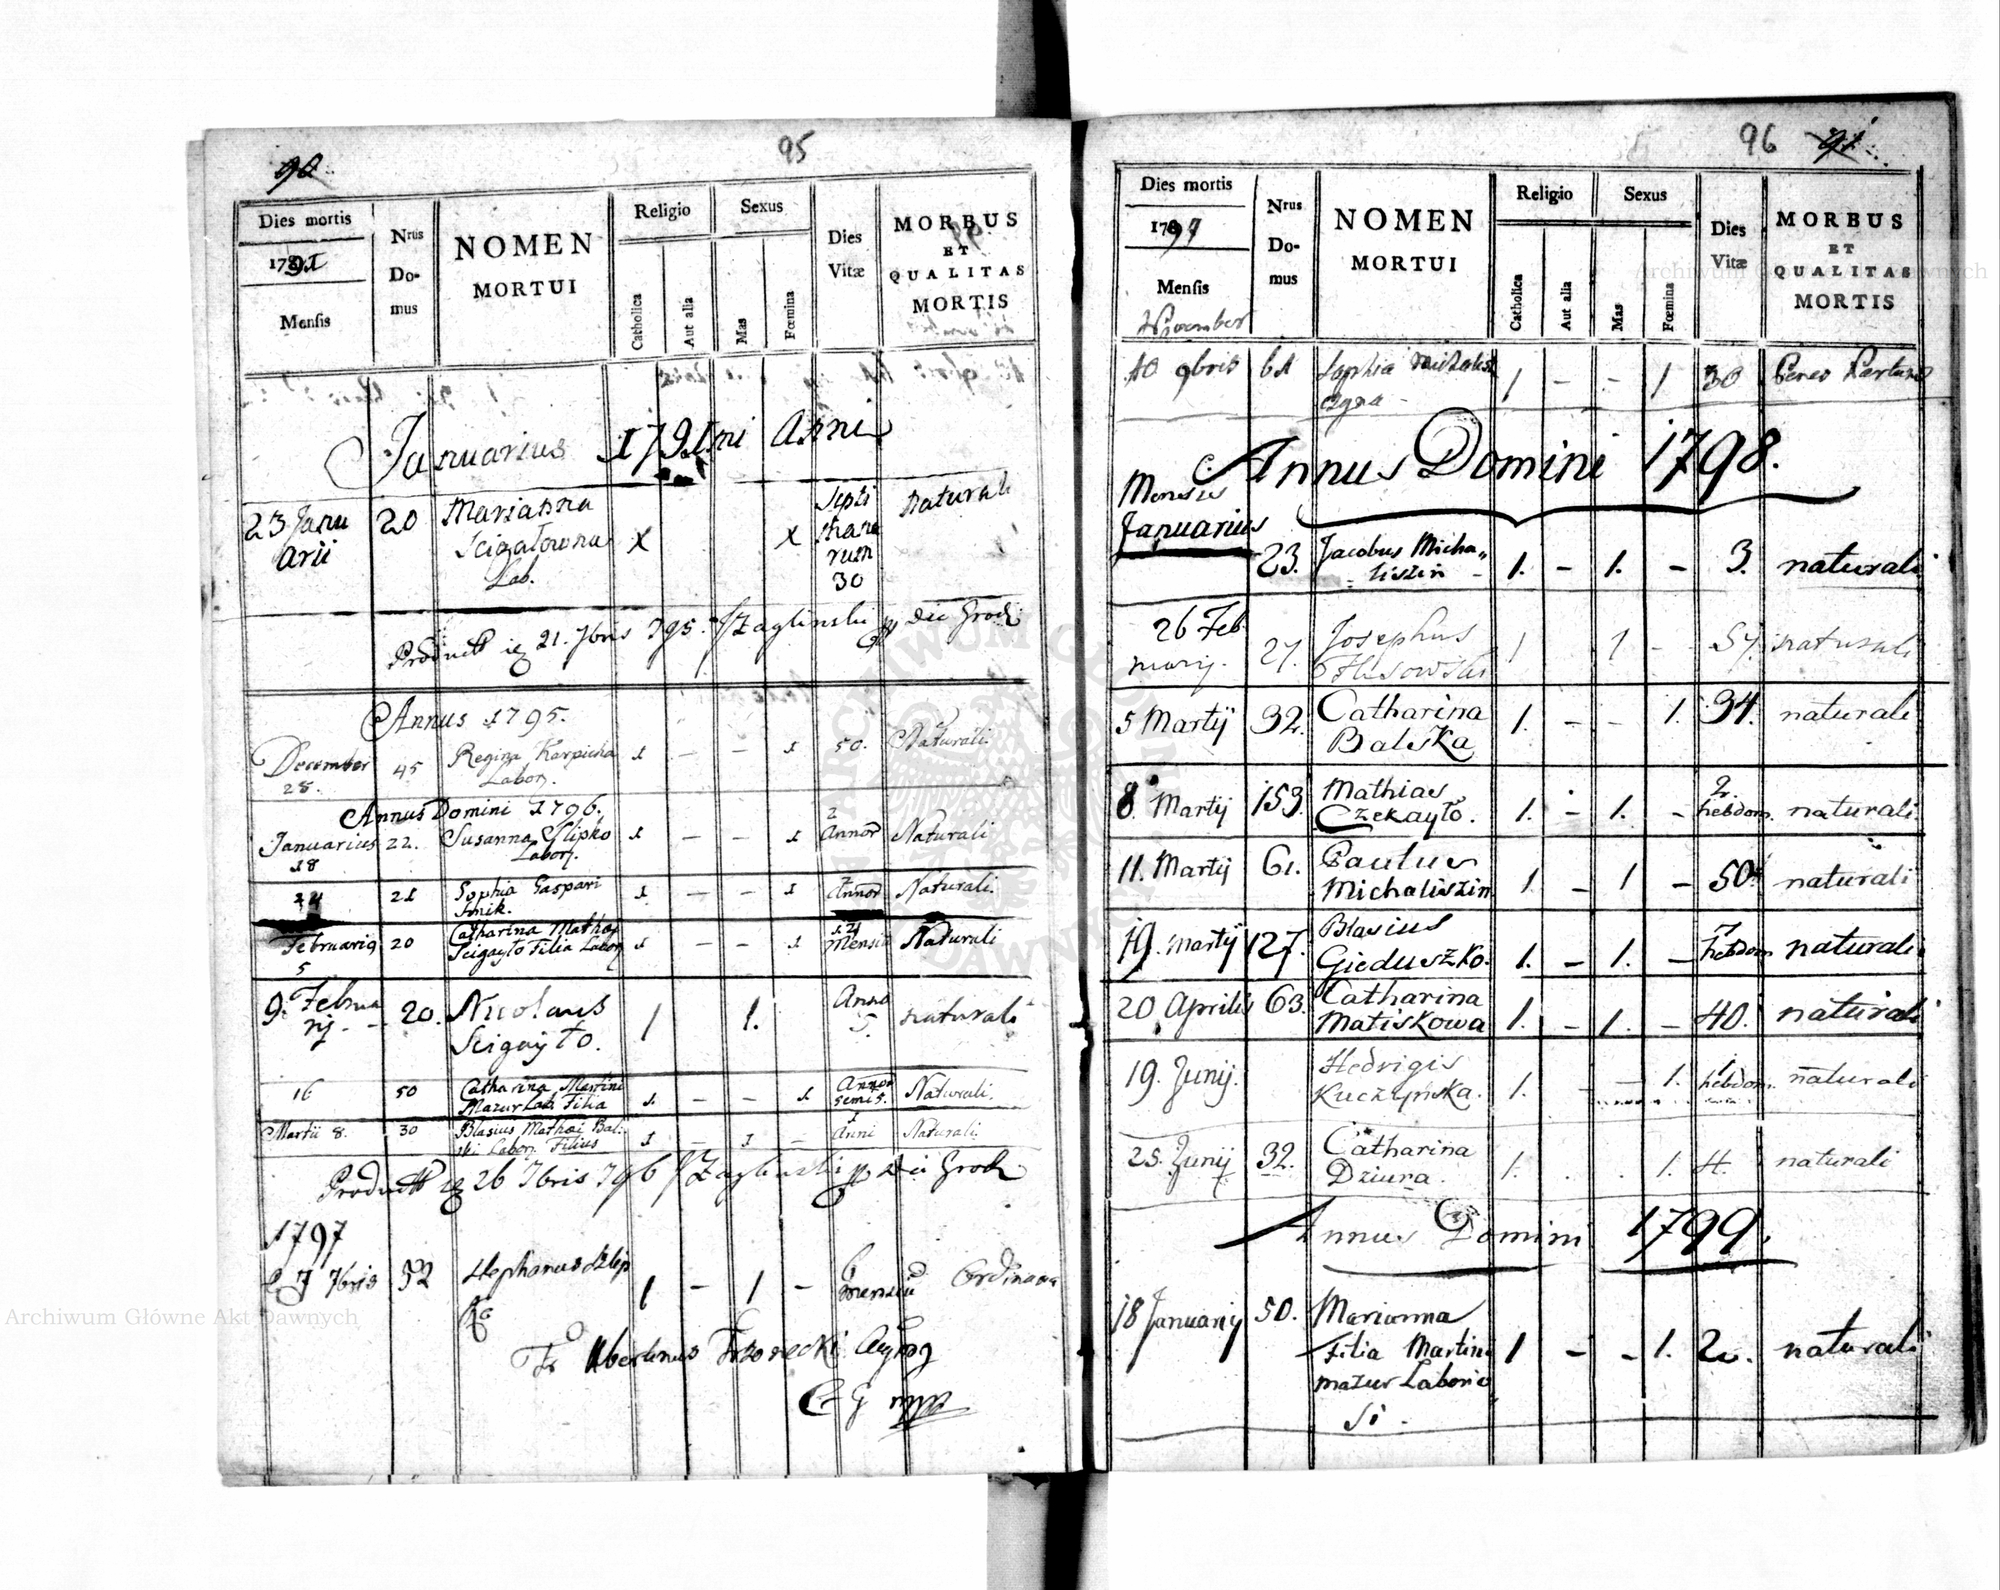 90 95
Dies mortis Nrus Do-mus NOMEN MORTUI Religio Sexus Dies Vitæ MORBUS ET QUALITAS MORTIS
1791 Mensis Catholica Aut alia Mas Fœmina
Januarius 1791mi Anni
23 Janu 20 Marianna Septi naturali
arii Scigałowna x x mana
Lab. rum
30
Product 21. 7bris 795.
Annus 1795.
December 45 Regina Karpicha 1 – – 1 50. Naturali
28. Labor.
Annus Domini 1796.
Januarius 22. Susanna Slipko 1 – – 1 2 Annor Naturali
18 Labor.
21 Sophia Gaspari 1 – – 1 Annor Naturali.
Februarii 20 Catharina Mathaj 1 – – 1 Mensiu Naturali
5 Scigayło Filia Labor
9. Februa 20. Nicolaus 1 1. Anno naturali
rij – Scigayło. 5.
16 50 Catharina Martini 1 – – 1 Annor Naturali.
Mazur Lab. Filia semis.
Martii 8. 30 Blasius Mathæi Bal: 1 – 1 – 1 Anni Naturali
ski Labor. Filius
Product 26 7bris 796
1797
7bris 52 Stephanus Slip 1 – 1 – 6 mensiu Ordinaria
ko
Fr
96 91
Dies mortis Nrus Do-mus NOMEN MORTUI Religio Sexus Dies Vitæ MORBUS ET QUALITAS MORTIS
1797 Mensis Catholica Aut alia Mas Fœmina
November
10 9bris 61 Sophia 1 – – 1 30
Annus Domini 1798.
Mensis
Januarius
23. Jacobus Micha„ 1. – 1. – 3. naturali
liszin –
26 Feb 27. Josephus 1 1 – 57. naturali
ruarij.
5 Martij 32. Catharina 1. – – 1. 34. naturali
Balska
8 Martij 153. Mathias 1. – 1. – 2. naturali
Czekayło. hebdom.
11. Martij 61. Paulus 1. – 1 – 50. naturali
Michaliszin
19. Martij 127. Blasius 1. – 1. – hebdom naturali
Gieduszko.
20 Aprilis 63. Catharina 1. – 1. – 40. naturali
Matiskowa
19. Junij. Hedvigis 1. – 1. 1 hebdom. naturali
Kuczyńska.
25. Junij 32. Catharina 1. . . 1. 4. naturali
Dziura.
Annus Domini 1799.
18 Januarij 50. Marianna
Filia Martini 1 – – 1. 2. naturali
mazur Laborio
si.
Archiwum Główne Akt Dawnych
Archiwum Główne Akt Dawnych
ARCHIWUM GŁÓWNE AKT DAWNYCH